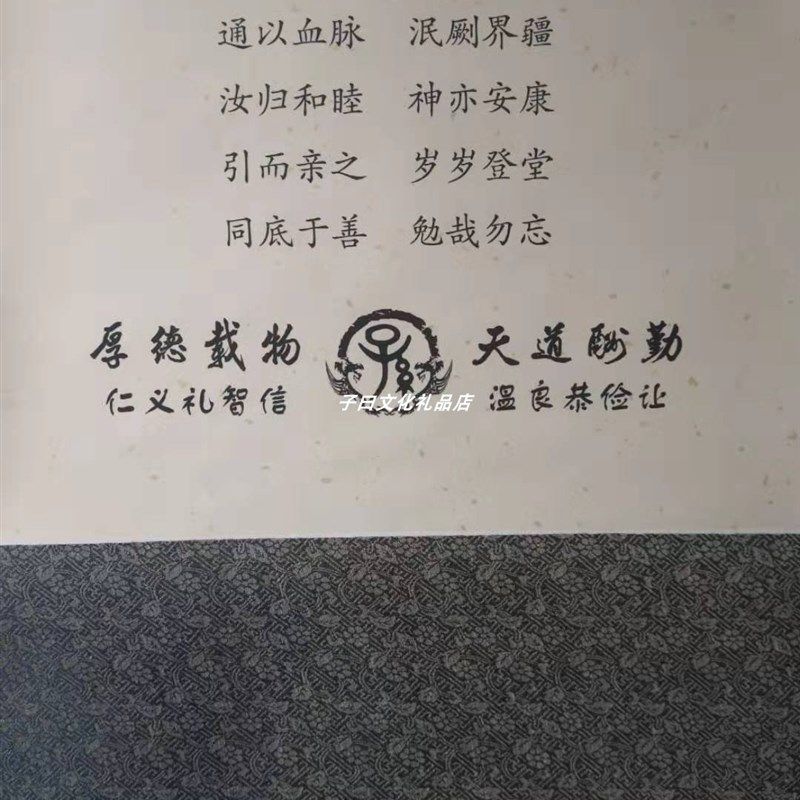 通以血脉 泯厥界疆
汝归和睦 神亦安康
引而亲之 岁岁登堂
同底于善 勉哉勿忘
厚德载物 天道酬勤
仁义礼智信 温良恭俭让
子曰文化礼品店